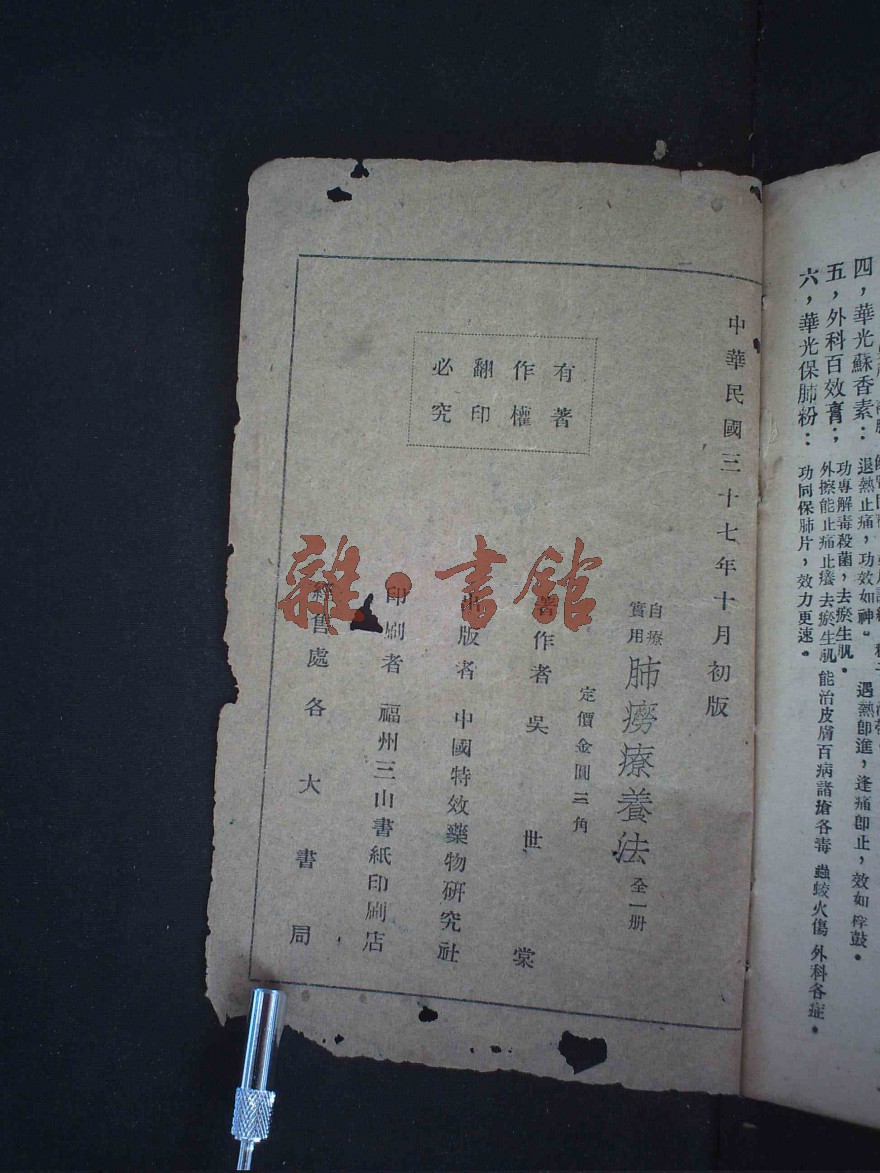 四，華光蘇香素：
退熱止痛，功效如神。 遇熱卽進，逢痛卽止，效如桴鼓。
五，外科百效膏；
功專解毒殺菌，去瘀生肌。
外擦能止痛止癢去瘀生肌能治皮膚百病諸搶各毒 蟲蛟火傷 外科各症。
六，華光保肺粉：
功同保肺片，效力更速。
中華民國三十七年十月初版
有著
作權
翻印
必究
自療
實用
肺癆療養法 全一册
定價金圓三角
著作者 吳世棠
出版者 中國特效藥物硏究社
印刷者 福州三山書紙印刷店
經售處各大書局
雜·書館